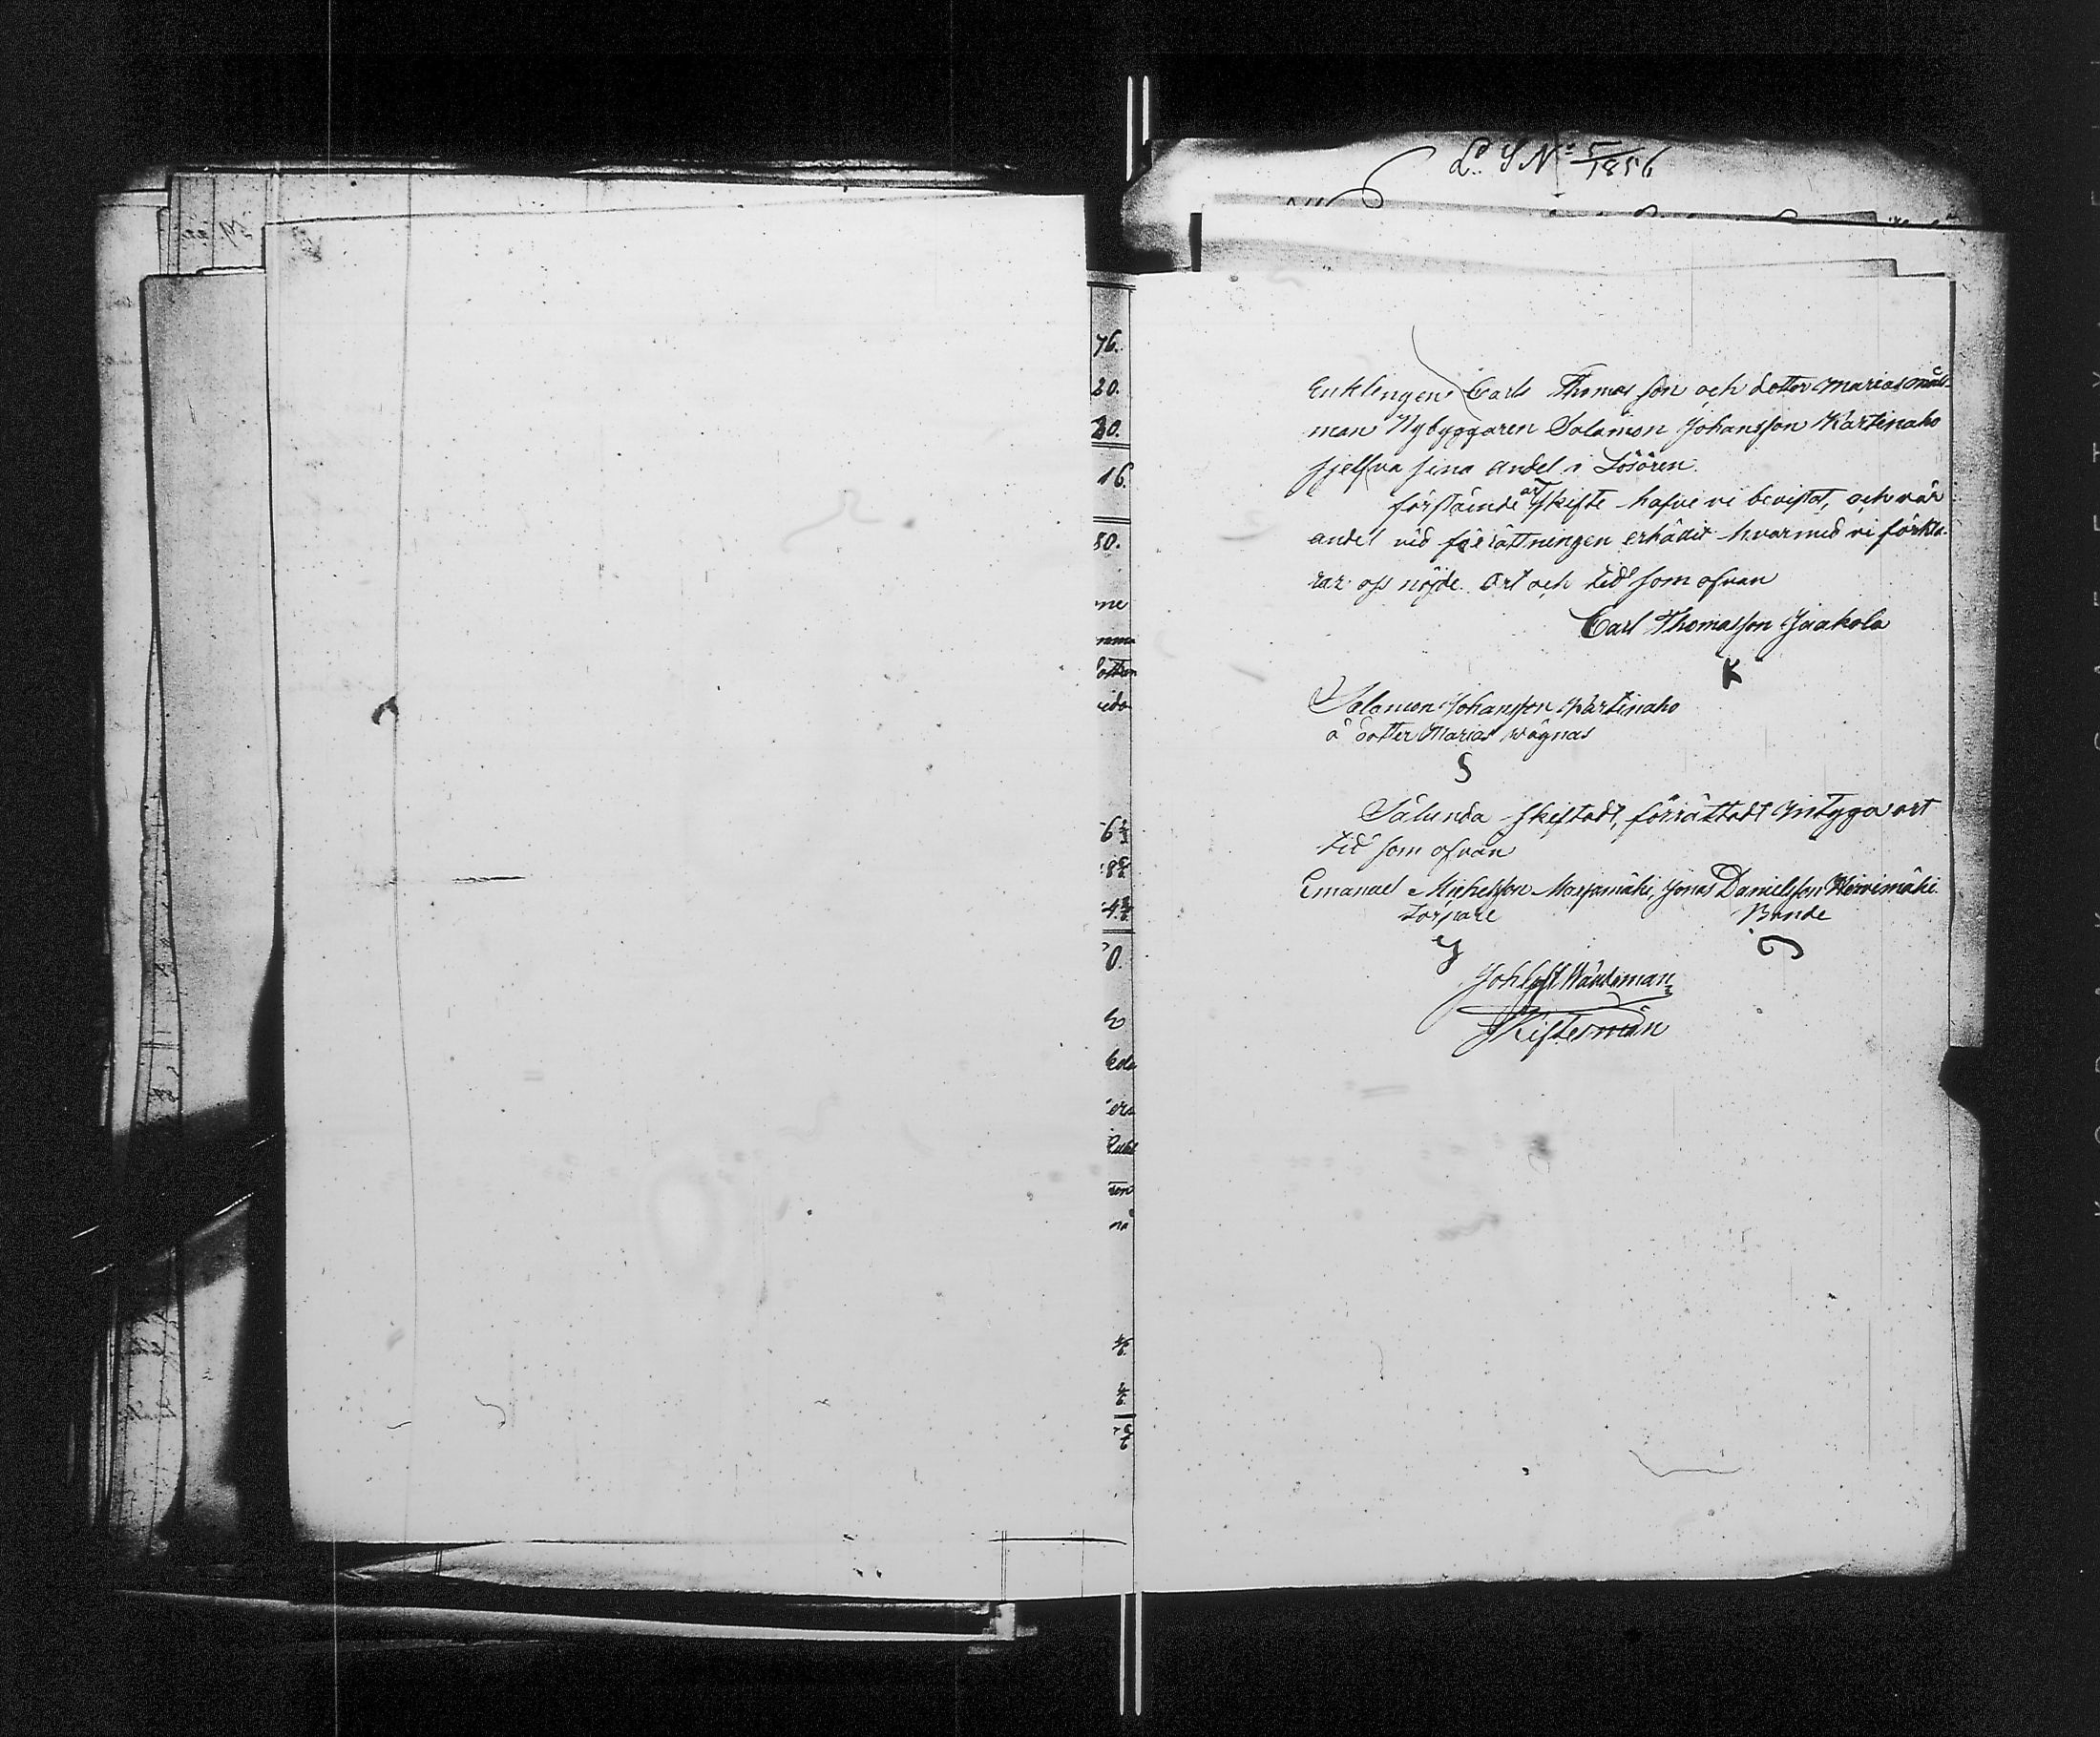 L. S N:o 5/1856
76.
20.
30.
16.
50.
ne
ido
6½
0.
Enklingens Carls Thomasson och dotter Marias måls-
man Nybyggaren Salamon Johansson Kartinaho
sjelfva sina andel i Lösören.
förstående arfskifte hafve vi bevistat, och vår
andel vid förrättningen erhådit hvarmed vi förkla-
rar oss nöjde. Ort och tid som ofvan
Carl Thomasson Jaakola
K
Salamon Johansson Kartinaho
å dotter Marias vägnas
S
Sålunda skiftadt, förrättadt intyga ort
tid som ofvan
Emanuel Michelsson Marjamäki, Jonas Danielsson
Torpare Bonde
Joh Wändeman
Skiftesman